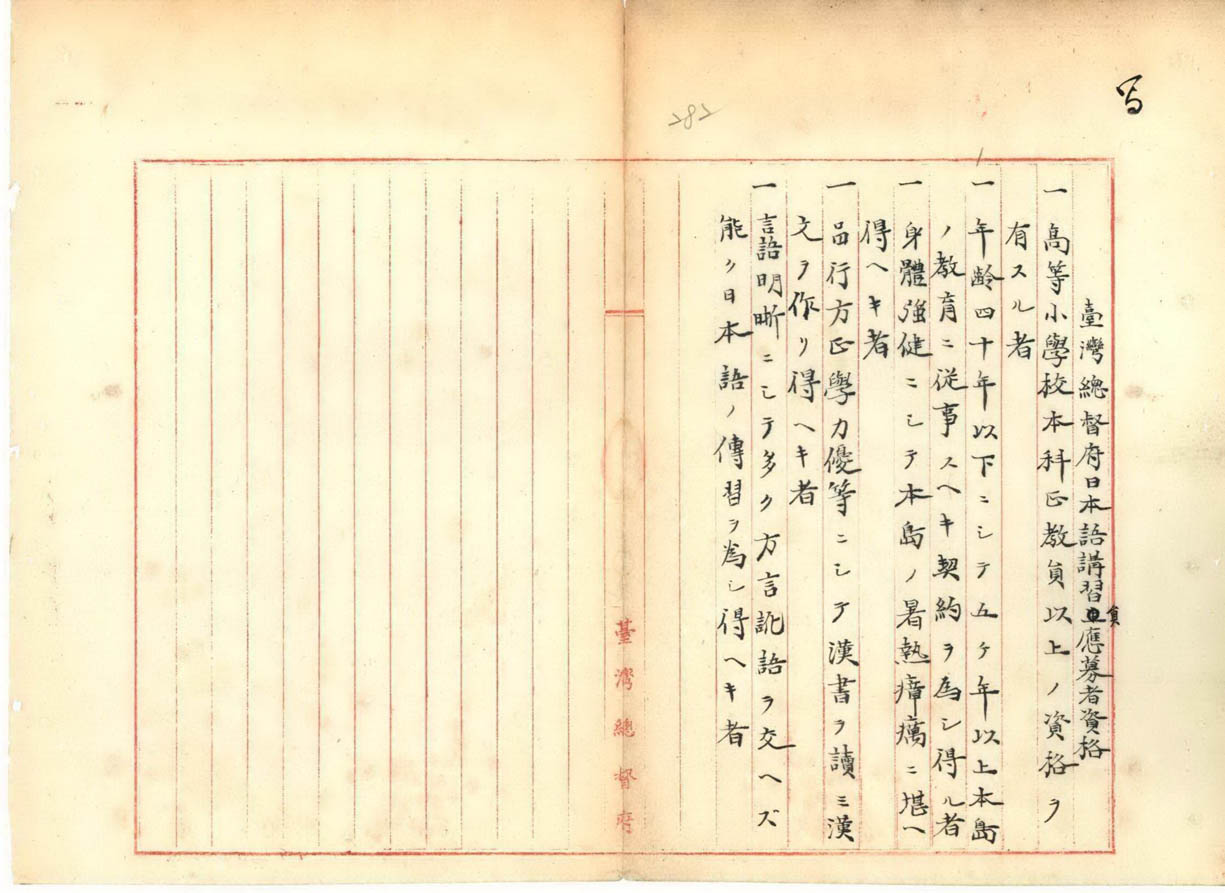 写
282
臺灣總督府日本語講習員應募者資格
一 高等小學校本科正教員以上ノ資格ヲ
有スル者
一 年齢四十年以下ニシテ五ケ年以上本島
ノ教育ニ従事スヘキ契約ヲ為シ得ル者
一 身體強健ニシテ本島ノ暑熱瘴癘ニ堪ヘ
得ヘキ者
一 品行方正學力優等ニシテ漢書ヲ讀ミ漢
文ヲ作リ得ヘキ者
一 言語明晰ニシテ多ク方言訛語ヲ交ヘズ
能ク日本語ノ傳習ヲ為シ得ヘキ者
臺灣總督府